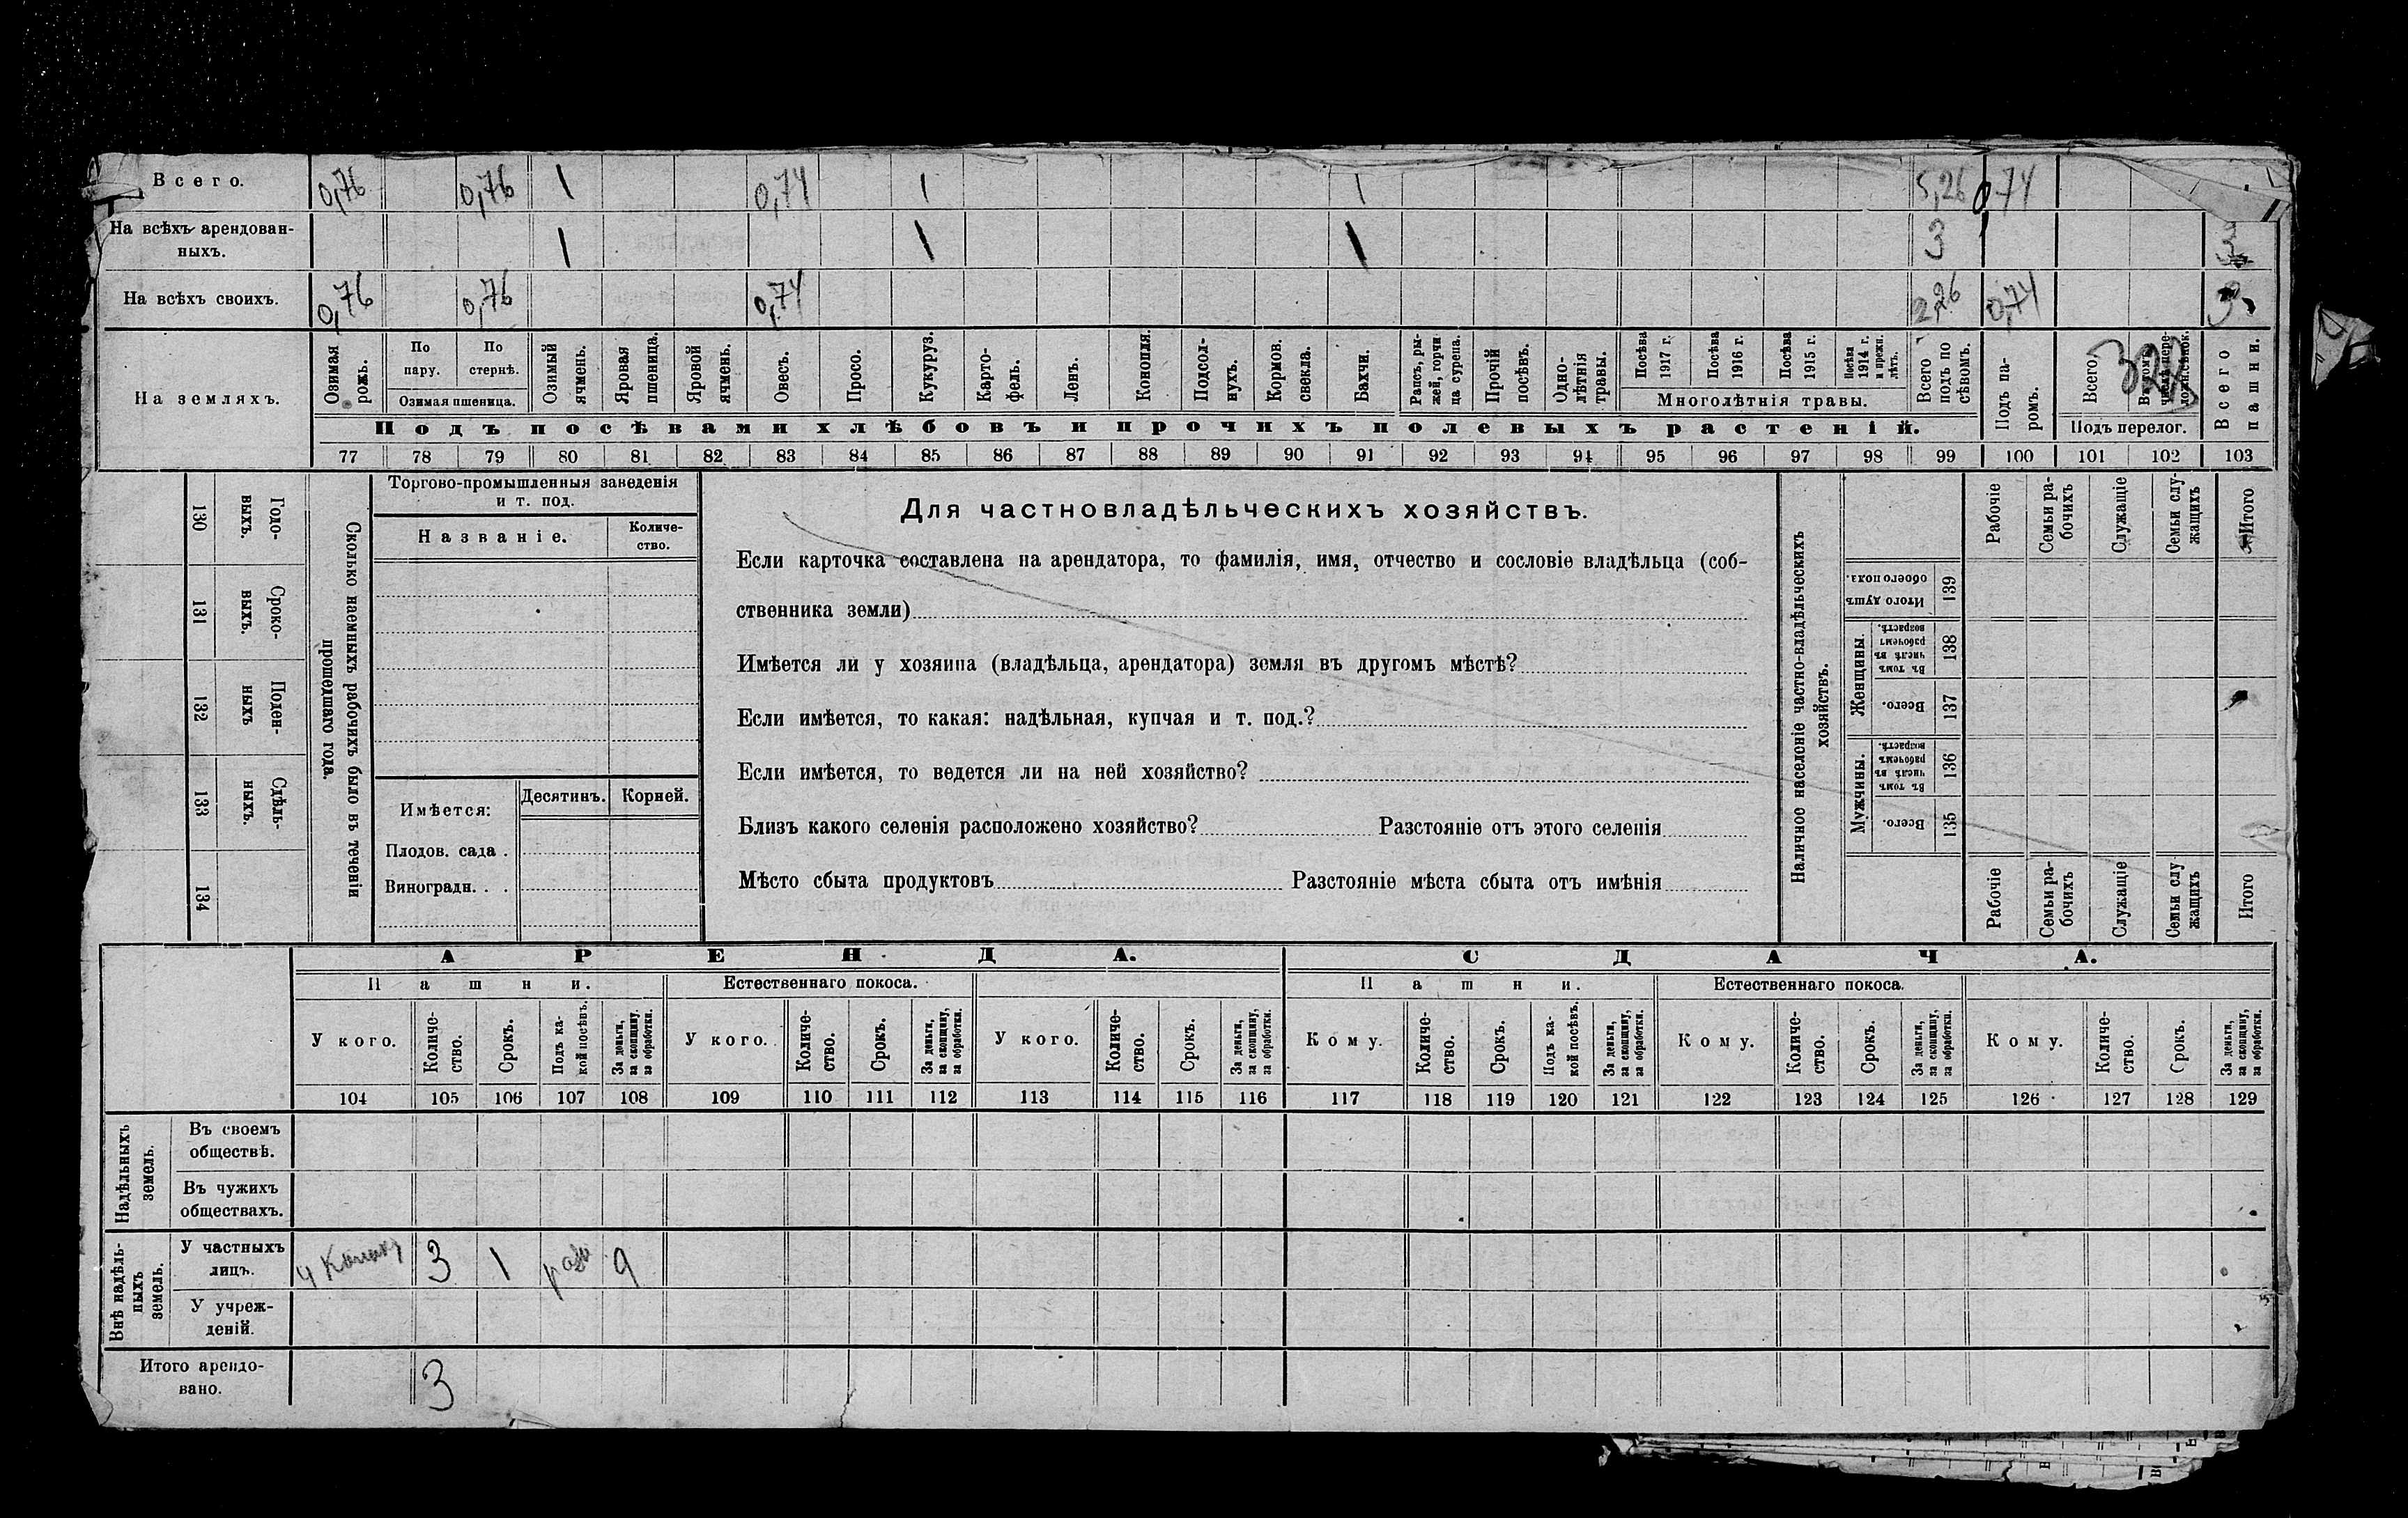 Всего. 0,76 0,76 1 0,74 1 1 5,26 0,74
На всѣхъ арендован-
ныхъ. 1 1 1 3 3
На всѣхъ своихъ. 0,76 0,76 0,74 2,26 0,74 3
На земляхъ.
Озимая рожь.
По пару.
По стернѣ.
Озимая пшеница.
Озимый ячмень.
Яровая пшеница.
Яровой ячмень.
Овесъ.
Просо.
Кукуруз.
Карто-
фель.
Ленъ.
Конопля.
Подсол-
нухъ.
Кормов. свекла.
Бахчи.
Рапсъ, ры-
жей, горчи
ца сурепа.
Прочій посѣвъ.
Одно-
лѣтнія травы.
Посѣва 1917 г.
Посѣва 1916 г.
Посѣва 1915 г.
Посѣва 1914 г. и прежн. лѣтъ.
Многолѣтнія травы.
Всего подъ по
сѣвомъ.
Подъ па-
ромъ.
Всего.
Подъ перелог.
Всего пашни.
Подъ посѣвами хлѣбовъ и прочихъ полевыхъ растеній.
77 78 79 80 81 82 83 84 85 86 87 88 89 90 91 92 93 94 95 96 97 98 99 100 101 102 103
130 Годо-
выхъ.
131 Сроко-
выхъ.
132 Поден-
ныхъ
133 Сдѣль-
ныхъ.
134
Сколько наемныхъ рабочихъ было въ теченіи
прошедшаго года.
Торгово-промышленныя заведенія
и т. под.
Названіе.
Количе-
ство.
Имѣется:
Десятинъ. Корней.
Плодов. сада .
Виноградн. . .
Для частновладѣльческихъ хозяйствъ.
Если карточка составлена на арендатора, то фамилія, имя, отчество и сословіе владѣльца (соб-
ственника земли)
Имѣется ли у хозяина (владѣльца, арендатора) земля въ другомъ мѣстѣ?
Если имѣется, то какая: надѣльная, купчая и т. под.?
Если имѣется, то ведется ли на ней хозяйство?
Близъ какого селенія расположено хозяйство? Разстояніе отъ этого селенія
Мѣсто сбыта продуктовъ Разстояніе мѣста сбыта отъ имѣнія
Наличное населеніе частно-владѣльческихъ
хозяйствъ.
Рабочіе
Семьи ра-
бочихъ
Служащіе
Семьи слу-
жащихъ
Итого
Итого душъ обоего пола. 139
Женщины.
Въ томъ числѣ въ рабочемъ возрастѣ. 138
Всего. 137
Мужчины.
Въ томъ числѣ въ рабочемъ возрастѣ. 136
Всего. 135
Рабочіе
Семьи ра-
бочихъ
Служащіе
Семьи слу
жащихъ
Итого
АРЕНДА. СДАЧА.
Пашни. Естественнаго покоса. Пашни. Естественнаго покоса.
У кого.
Количе-
ство.
Срокъ.
Подъ ка-
кой посѣвъ.
За деньги,
за скопщину,
за обработки.
У кого.
Количе-
ство.
Срокъ.
За деньги,
за скопщину,
за обработки.
У кого.
Количе-
ство.
Срокъ.
За деньги,
за скопщину,
за обработки.
Кому.
Количе-
ство.
Срокъ.
Подъ ка-
кой посѣвъ.
За деньги,
за скопщину,
за обработки.
Кому.
Количе-
ство.
Срокъ.
За деньги,
за скопщину,
за обработки.
Кому.
Количе-
ство.
Срокъ.
За деньги,
за скопщину,
за обработки.
104 105 106 107 108 109 110 111 112 113 114 115 116 117 118 119 120 121 122 123 124 125 126 127 128 129
Надѣльныхъ
земель.
Въ своемъ
обществѣ.
Въ чужихъ
обществахъ.
Внѣ надѣль-
ныхъ
земель.
У частныхъ
лицъ. 3 1
У учреж-
деній.
Итого арендо-
вано. 3